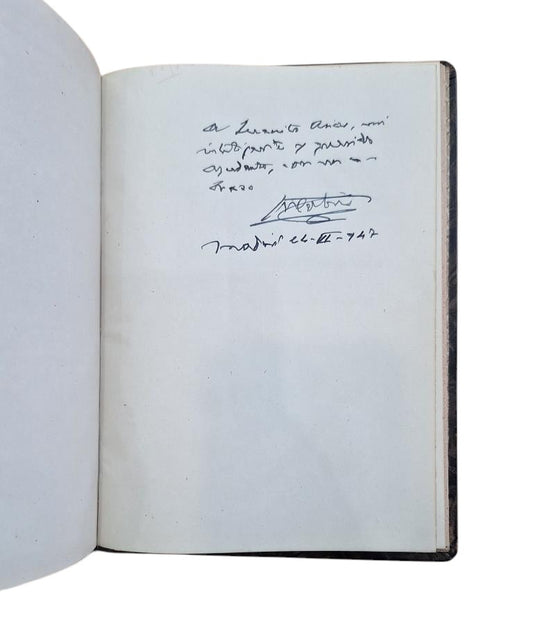 A Juanito Arias, mi
inteligente y querido
ayudante, con un a-
brazo
Madrid 24-VI-947